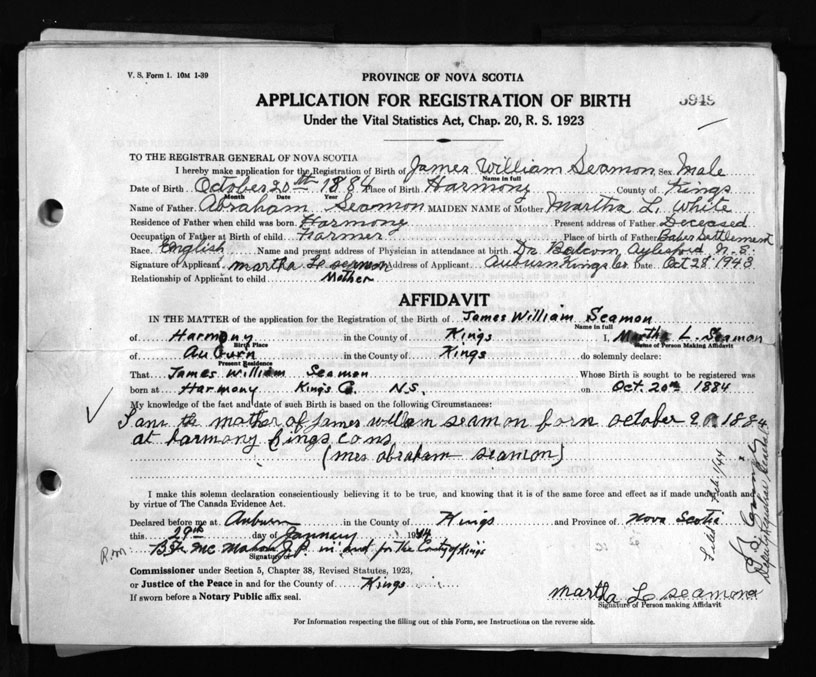 V. S. Form 1. 10M 1-39
PROVINCE OF NOVA SCOTIA
APPLICATION FOR REGISTRATION OF BIRTH
5949
Under the Vital Statistics Act, Chap. 20, R. S. 1923
TO THE REGISTRAR GENERAL OF NOVA SCOTIA
I hereby make application for the Registration of Birth of James William Seamon Sex Male
Name in full
Date of Birth October 20th 1884 Place of Birth Harmony County of Kings
Month Day Year
Name of Father Abraham Seamon MAIDEN NAME of Mother Martha L. White
Residence of Father when child was born Harmony Present address of Father Deceased
Occupation of Father at Birth of child Farmer Place of birth of Father Settlement
Race English Name and present address of Physician in attendance at birth Dr. Balcom Aylesford N.S.
Signature of Applicant martha L seamon Address of Applicant Auburn Kings Co. Date Oct 28 1943
Relationship of Applicant to child Mother
AFFIDAVIT
IN THE MATTER of the application for the Registration of the Birth of James William Seamon
Name in full
of Harmony in the County of Kings I, Martha L. Seamon
Birth Place Name of Person Making Affidavit
of Auburn in the County of Kings do solemnly declare:
Present Residence
That James William Seamon Whose Birth is sought to be registered was
born at Harmony Kings C. N.S. on Oct. 20th 1884
My knowledge of the fact and date of such Birth is based on the following Circumstances:
I am the mother of james william seamon born october 20 1884
at harmony kings co ns
(mrs abraham seamon)
I make this solemn declaration conscientiously believing it to be true, and knowing that it is of the same force and effect as if made under oath and
by virtue of The Canada Evidence Act.
Declared before me at Auburn in the County of Kings and Province of Nova Scotia
this 29th day of January 1944
Mc Mahon J.P. in and for the County of Kings
Signature
Commissioner under Section 5, Chapter 38, Revised Statutes, 1923,
or Justice of the Peace in and for the County of Kings
If sworn before a Notary Public affix seal.
martha L seamon
Signature of Person making Affidavit
For Information respecting the filling out of this Form, see Instructions on the reverse side.
Filed Feb 1/44
Deputy Registrar General